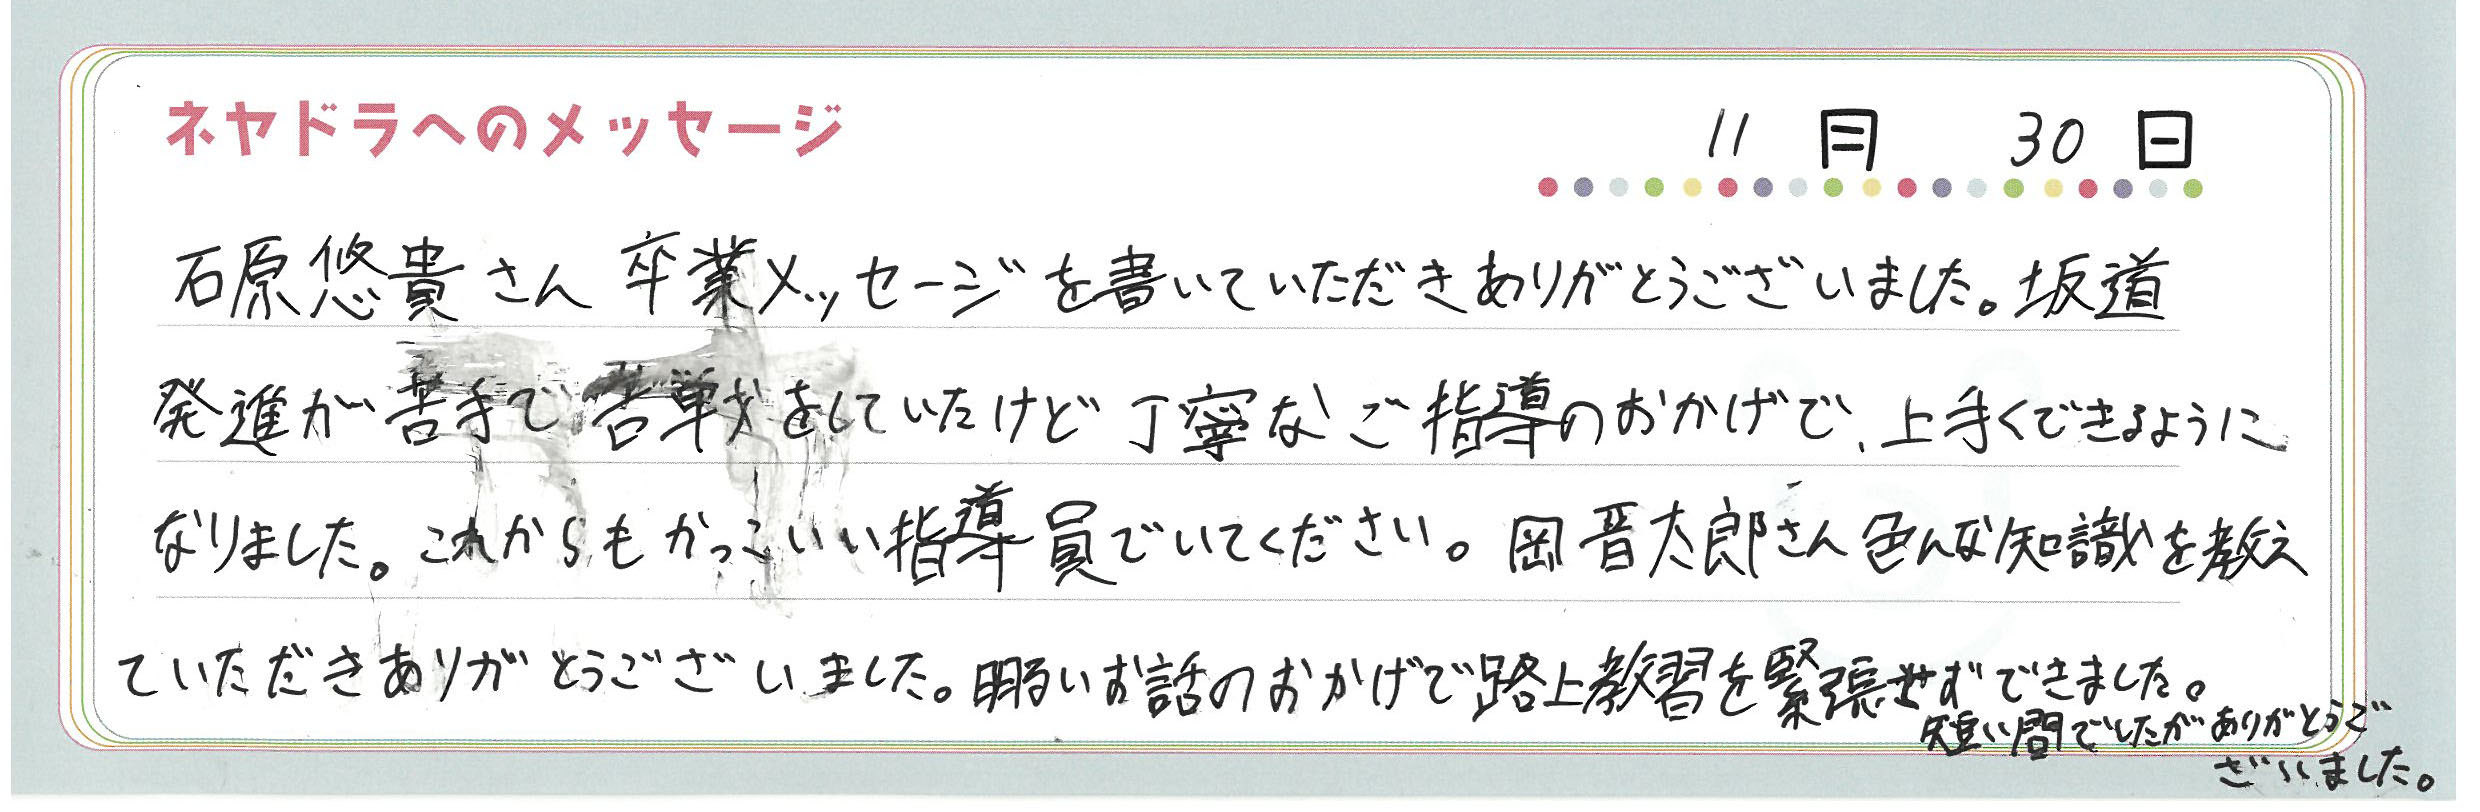 ネヤドラへのメッセージ
11月 30日
石原悠貴さん 卒業メッセージを書いていただきありがとうございました。坂道
発進が苦手で苦戦をしていたけど丁寧なご指導のおかげで、上手くできるように
なりました。これからもかっこいい指導員でいてください。岡晋太郎さん色んな知識を教え
ていただきありがとうございました。明るいお話のおかげで路上教習を緊張せずできました。
短い間でしたがありがとうご
ざいました。